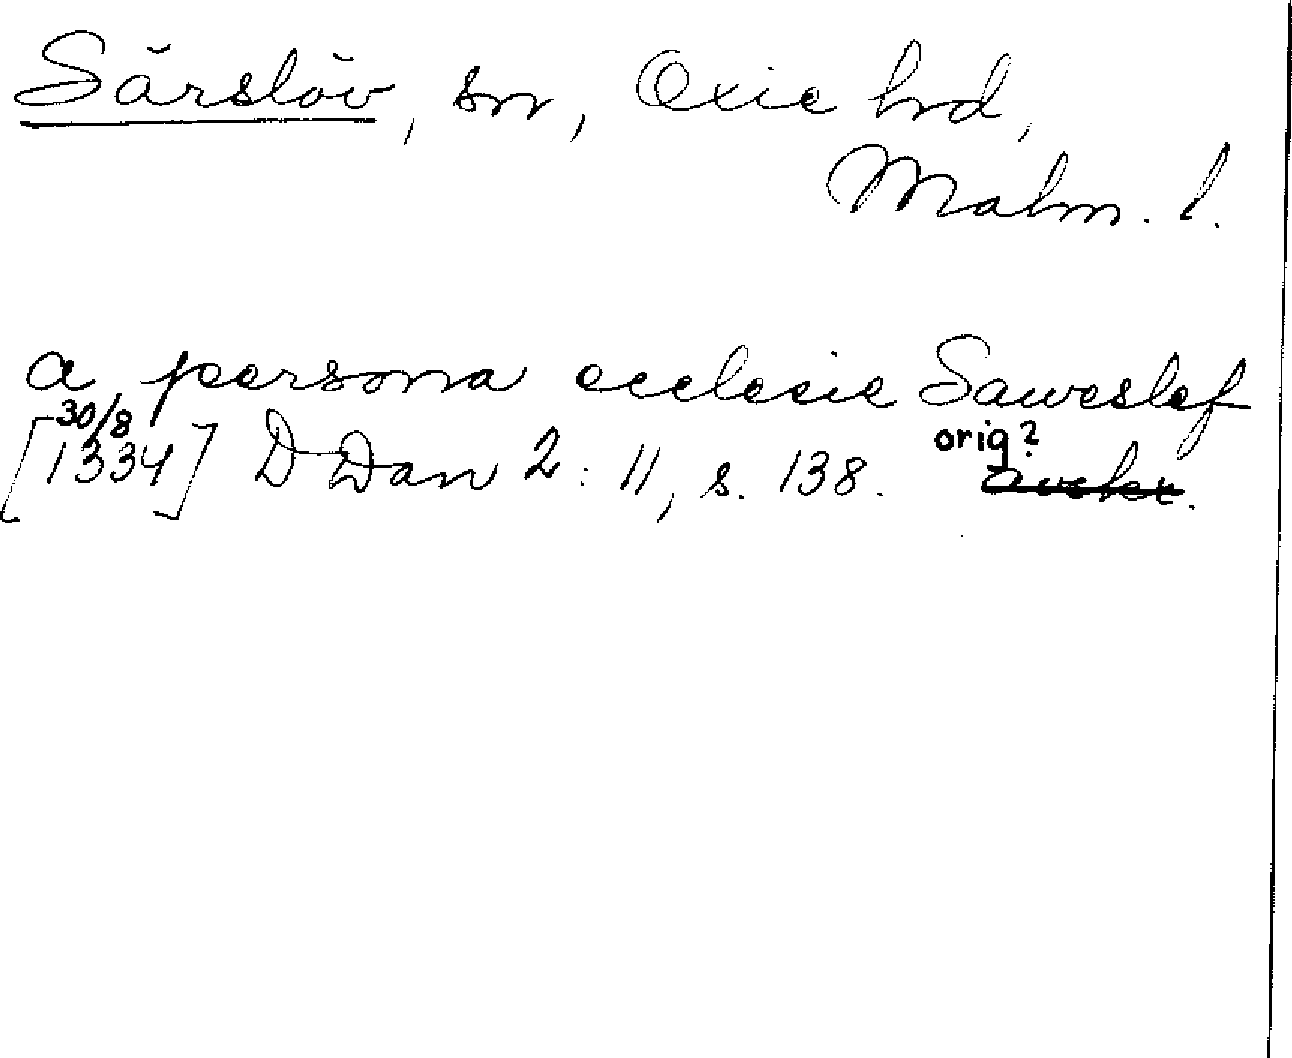 Särslöv, sn, Oxie hrd,
Malm. l.
a persona ecclesie Saweslef
30/8 orig?
[1334] D Dan 2: 11, s. 138.